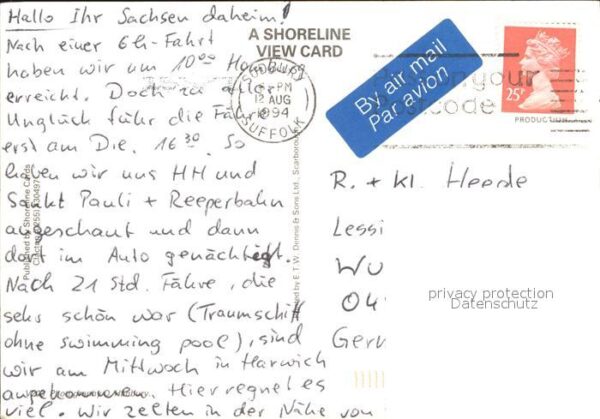 Hallo Ihr Sachsen daheim!
Nach einer 6h-Fahrt
haben wir um 10°° Hamburg
erreicht. Doch zu aller
Unglück fuhr die Fähre
erst am Die. 16³⁰. So
haben wir uns HH und
Sankt Pauli + Reeperbahn
angeschaut und dann
dort im Auto genächtigt.
Nach 21 Std. Fähre, die
sehr schön war (Traumschiff
ohne swimming pool), sind
wir am Mittwoch in Harwich
angekommen. Hier regnet es
viel. Wir zelten in der Nähe von
A SHORELINE
VIEW CARD
SUDBURY
PM
12 AUG
1994
SUFFOLK
By air mail
Par avion
your
Postcode
25P
PRODUCTION
Published by Shoreline Cards
by E.T.W. Dennis & Sons Ltd., Scarborough
R. + Kl. Heede
Lessi
Wu
04
Gern
privacy protection
Datenschutz